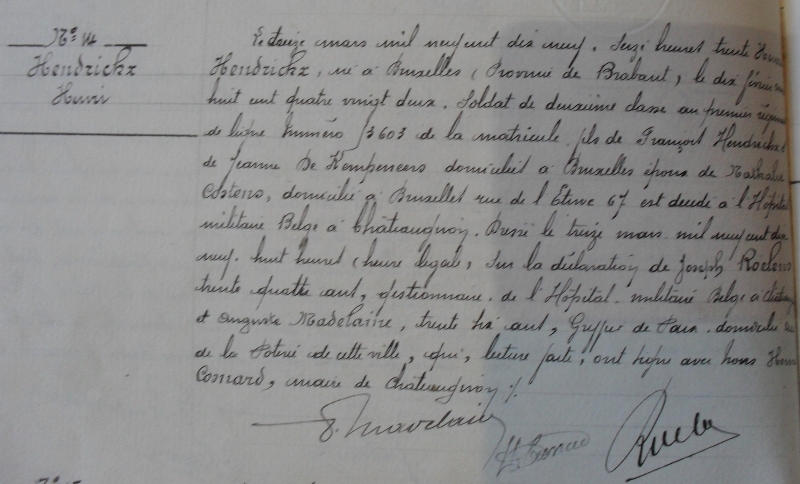 N° 14
Hendrickx
Henri
Le treize mars mil neufcent dix neuf. Seize heures trente Henri
Hendrickx, né à Bruxelles (Province de Brabant, le dix février mil
huit cent quatre vingt deux. Soldat de deuxième classe au premier régiment
de ligne numéro 13603 de la matricule fils de François Hendrickx et
de Jeanne De Kempeneers domiciliés à Bruxelles époux de Nathalie
Costens, domicilié à Bruxelles rue de l'Etuve 67 est décédé à l'Hôpital
militaire Belge à Châteaugiron. Dressé le treize mars mil neufcent dix
neuf. huit heures (heure légale, sur la déclaration de Joseph Roelens
trente quatre ans, gestionnaire de l'Hôpital militaire Belge à
et Auguste Madelaine, trente six ans, Greffier de Paix domiciliés
de la Poterie de cette ville, qui, lecture faite, ont signé avec nous Henri
Comard, maire de Chateaugiron ./.
A. Madelaine